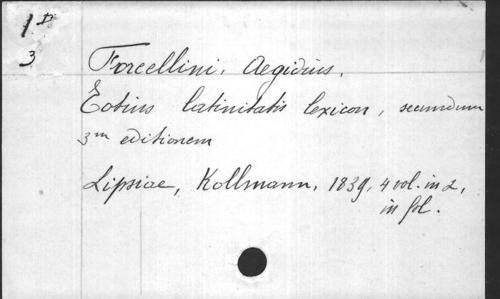 1D
3
Forcellini, Aegidius.
Totius latinitatis lexicon, secundum
3m editionem
Lipsiae, Kollmann, 1839, 4 vol. in 2,
in fol.